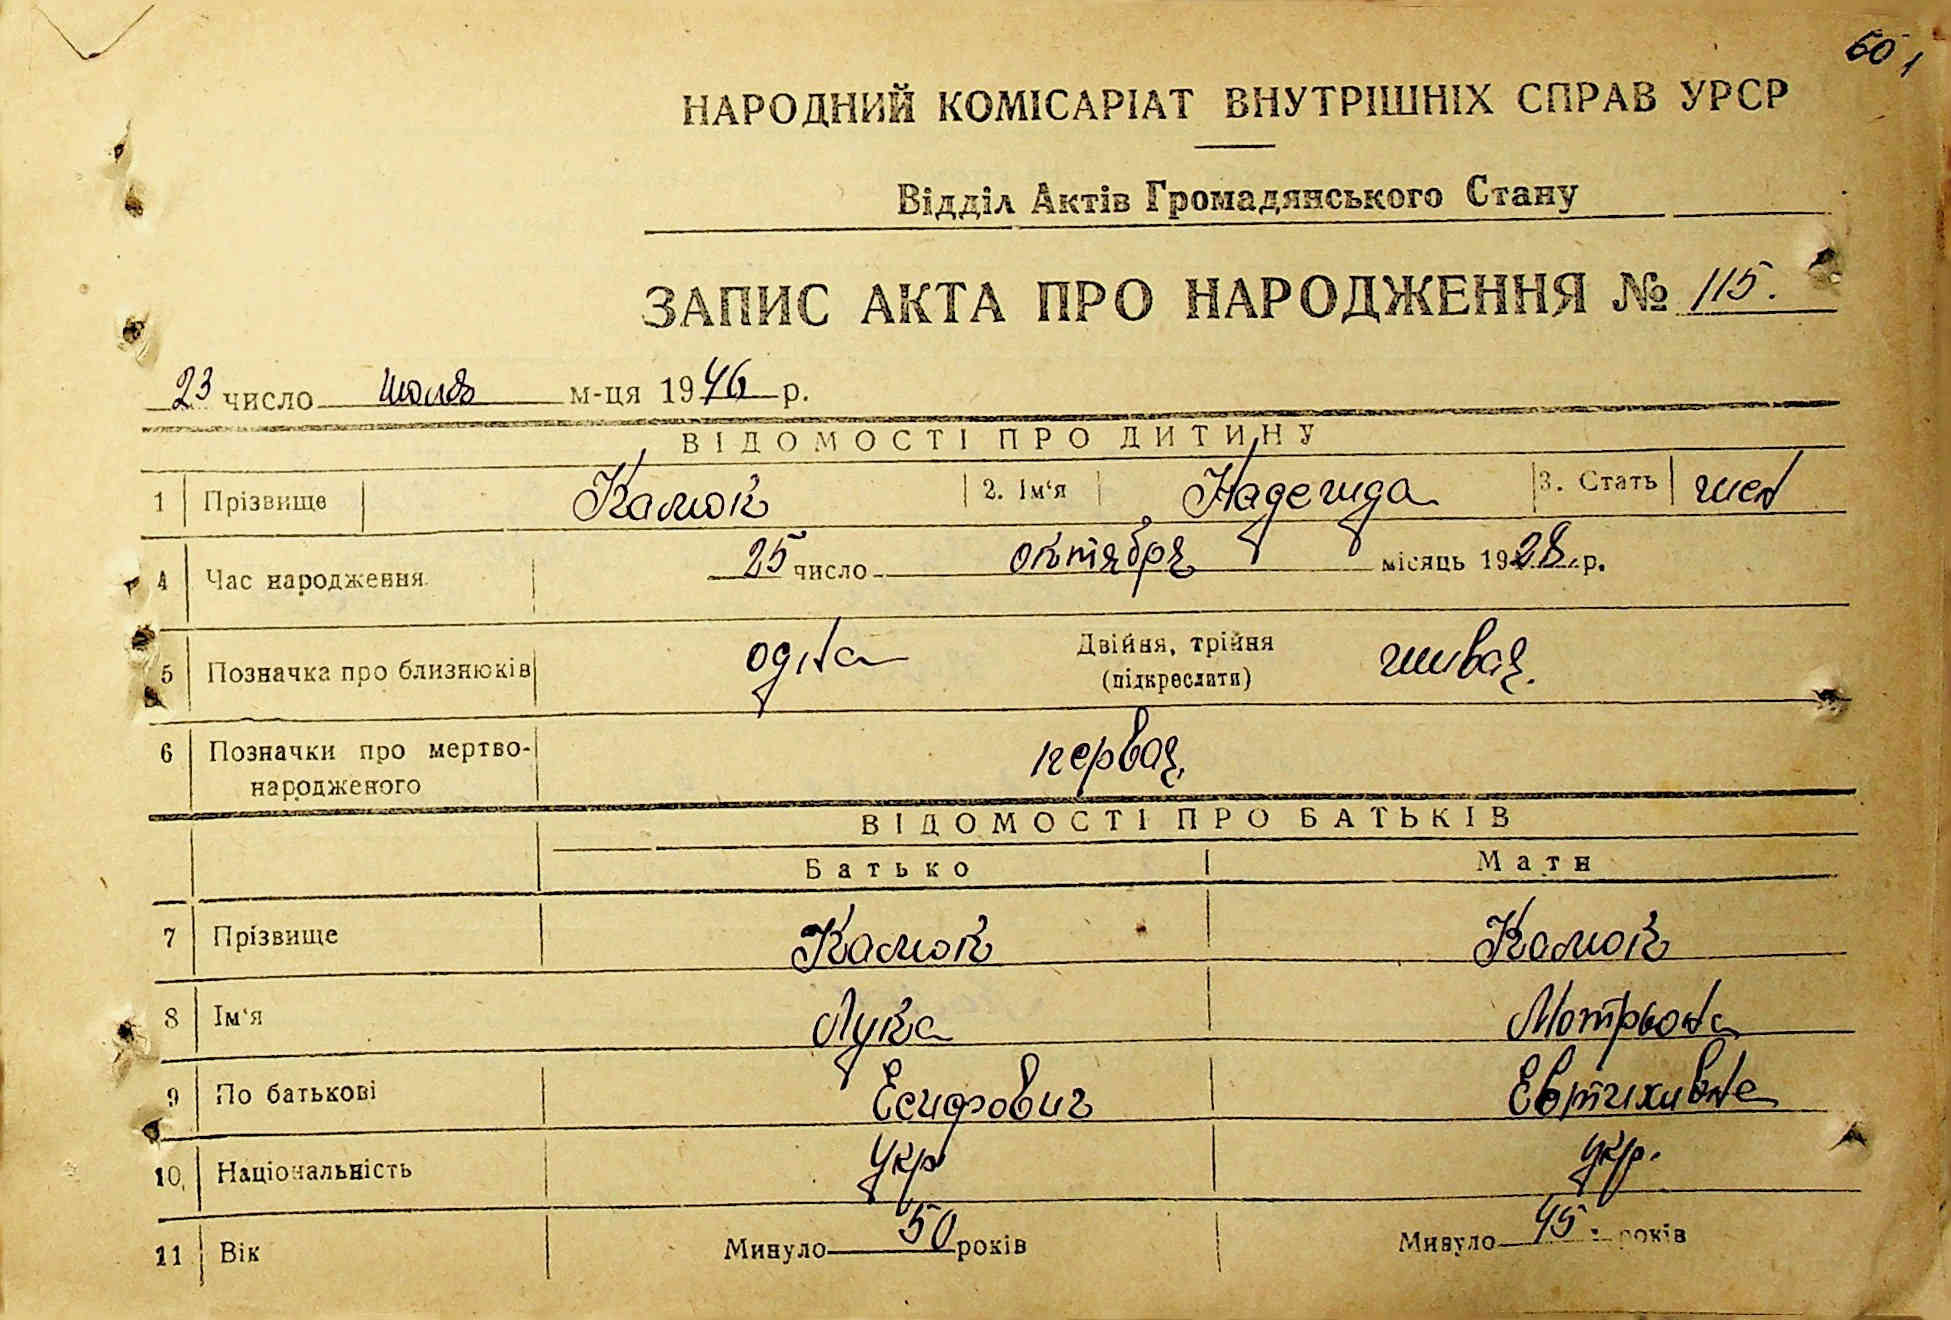 60
НАРОДНИЙ КОМІСАРІАТ ВНУТРІШНІХ СПРАВ УРСР
Відділ Актів Громадянського Стану
ЗАПИС АКТА ПРО НАРОДЖЕННЯ № 115.
23 число июля м-ця 1946 р.
ВІДОМОСТІ ПРО ДИТИНУ
1 Прізвище Калюк 2. Ім'я Надежда 3. Стать жен
4 Час народження 25 число октября місяць 1928 р.
5 Позначка про близнюків одна Двійня, трійня (підкреслити) живая.
6 Позначки про мертво-
народженого первая.
ВІДОМОСТІ ПРО БАТЬКІВ
Батько Мати
7 Прізвище Калюк Калюк
8 Ім'я Лука Мотрьона
9 По батькові Есифович Евтихивна
10 Національність укр укр.
11 Вік Минуло 50 років Минуло 45 років